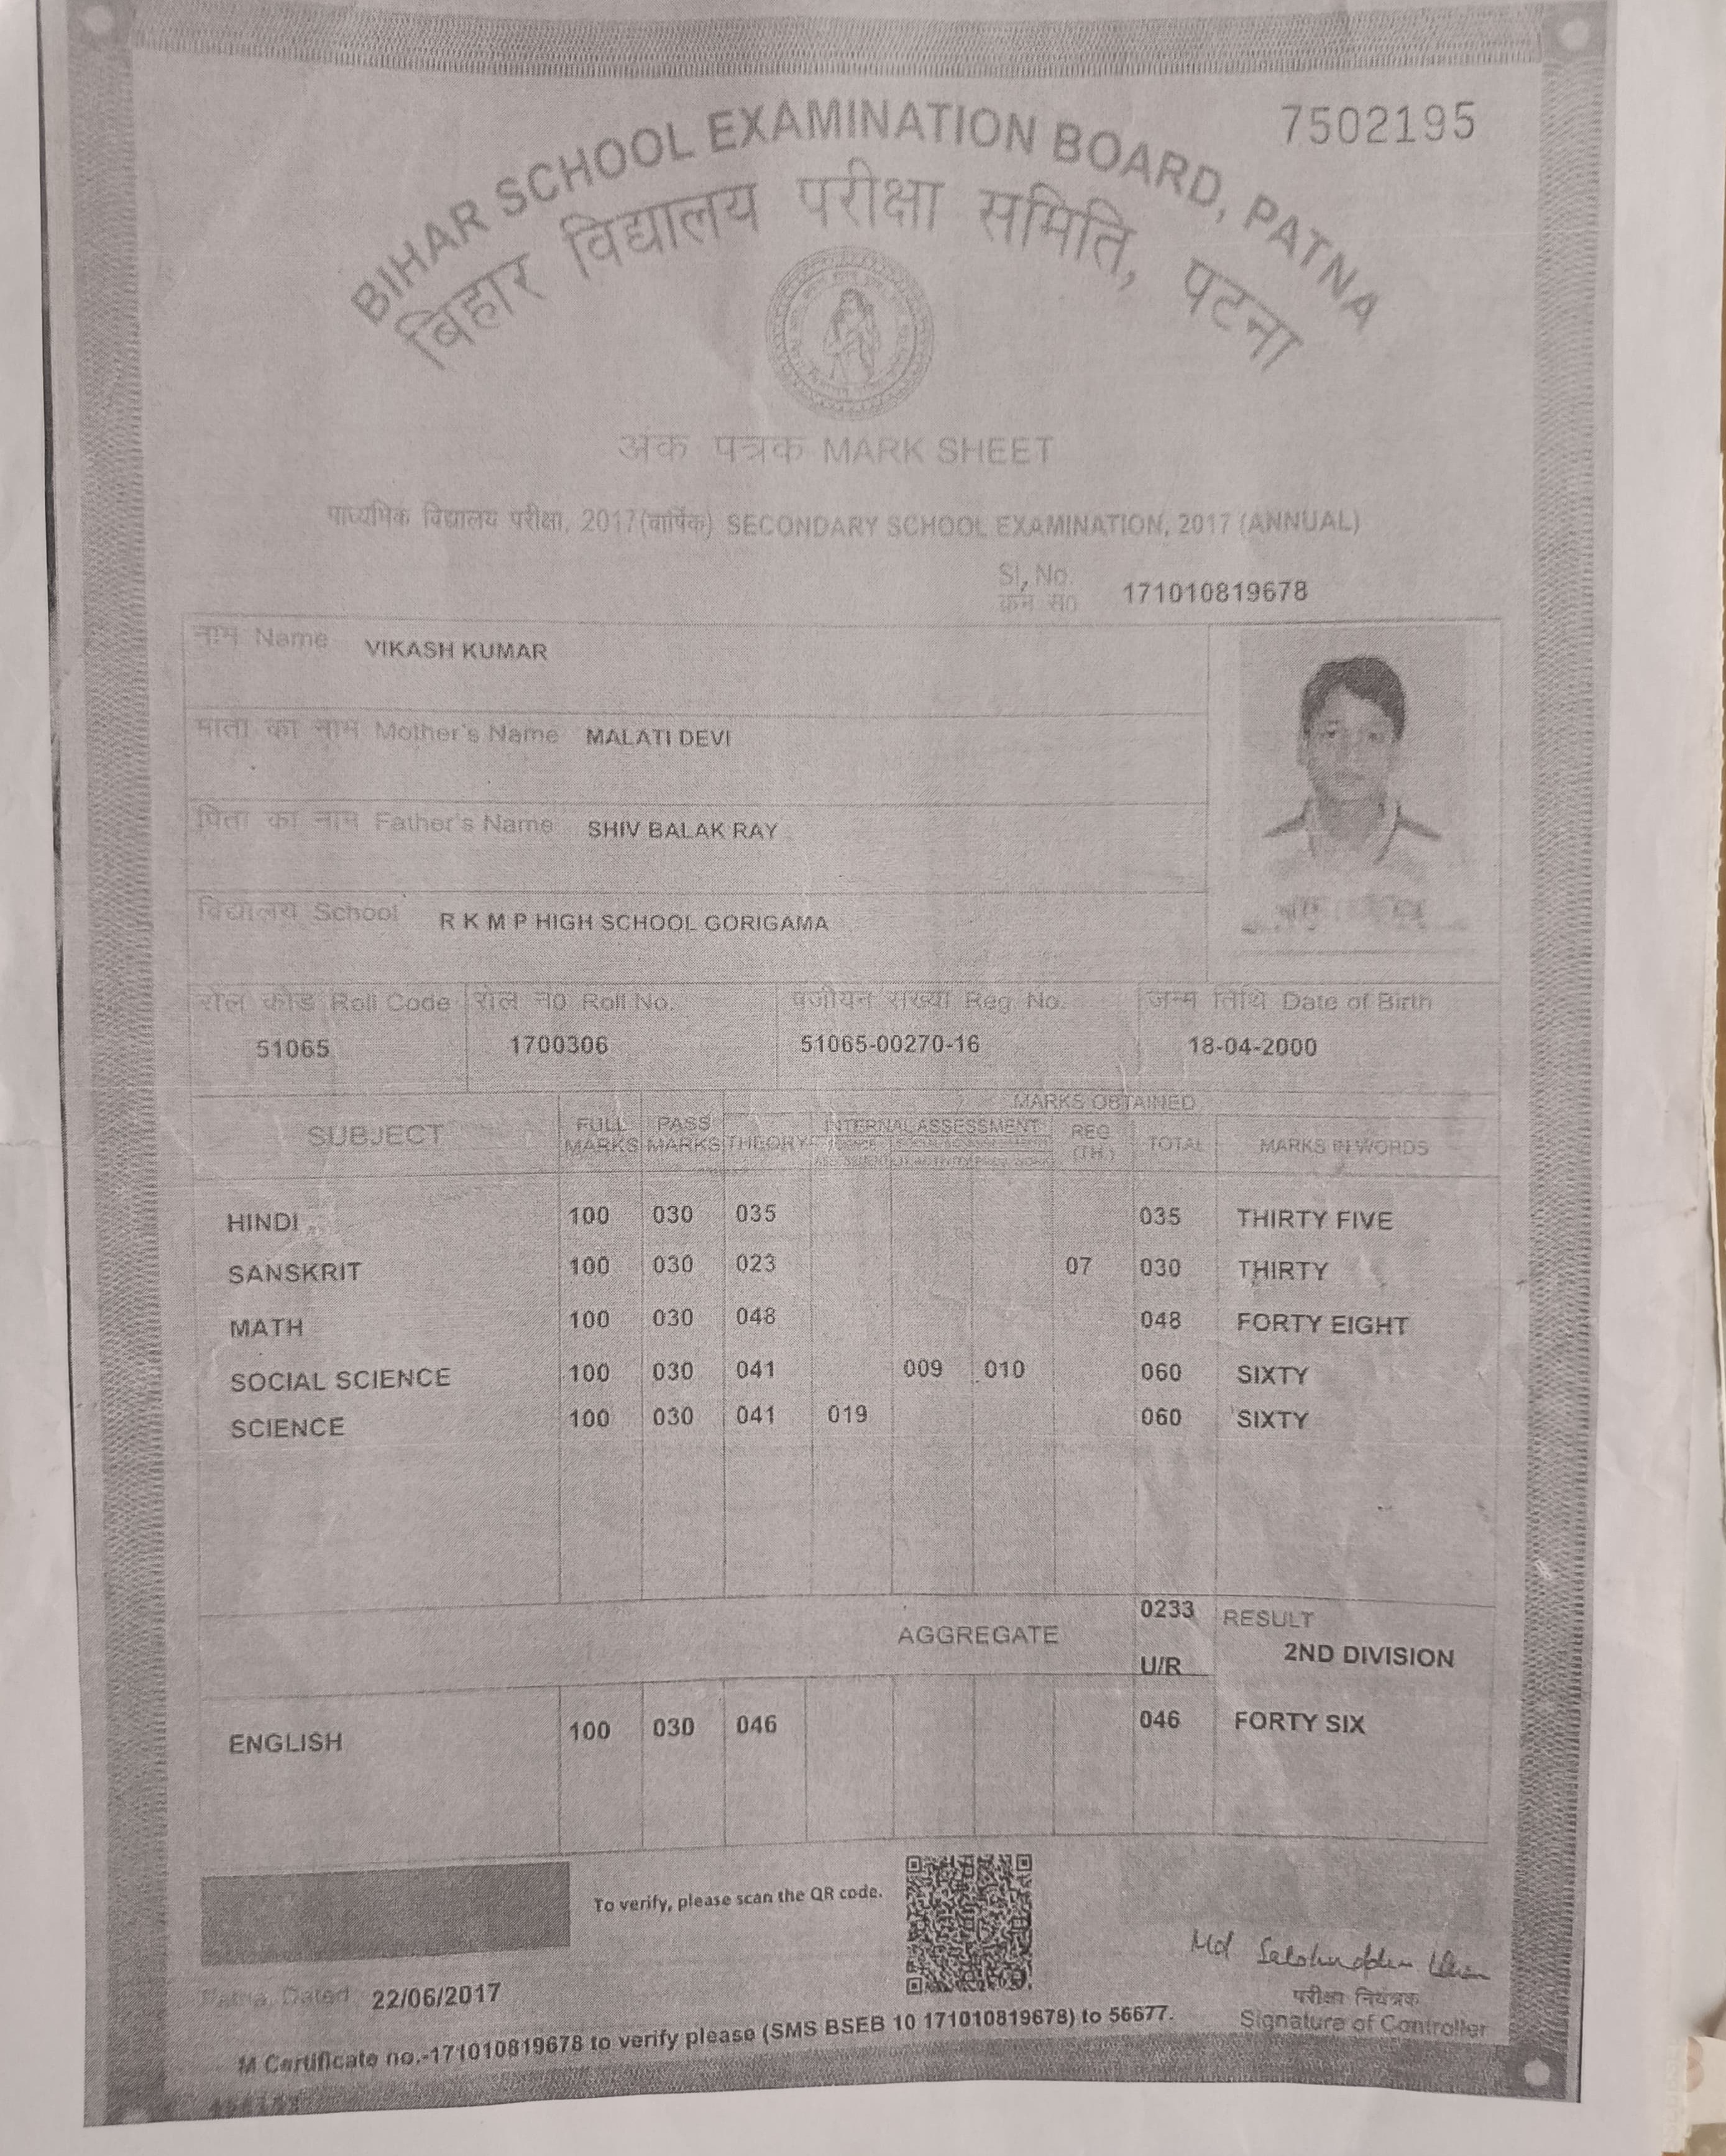 7502195
BIHAR SCHOOL EXAMINATION BOARD, PATNA
बिहार विद्यालय परीक्षा समिति, पटना
अंक पत्रक MARK SHEET
माध्यमिक विद्यालय परीक्षा, 2017(वार्षिक) SECONDARY SCHOOL EXAMINATION, 2017 (ANNUAL)
Sl. No.
क्रम सं0 171010819678
नाम Name VIKASH KUMAR
माता का नाम Mother's Name MALATI DEVI
पिता का नाम Father's Name SHIV BALAK RAY
विद्यालय School R K M P HIGH SCHOOL GORIGAMA
रोल कोड Roll Code रोल न0 Roll No. पंजीयन संख्या Reg. No. जन्म तिथि Date of Birth
51065 1700306 51065-00270-16 18-04-2000
MARKS OBTAINED
SUBJECT FULL MARKS PASS MARKS THEORY INTERNAL ASSESSMENT REG (TH.) TOTAL MARKS IN WORDS
HINDI 100 030 035 035 THIRTY FIVE
SANSKRIT 100 030 023 07 030 THIRTY
MATH 100 030 048 048 FORTY EIGHT
SOCIAL SCIENCE 100 030 041 009 010 060 SIXTY
SCIENCE 100 030 041 019 060 SIXTY
AGGREGATE 0233 RESULT
U/R 2ND DIVISION
ENGLISH 100 030 046 046 FORTY SIX
To verify, please scan the QR code.
Md
Patna, Dated 22/06/2017
परीक्षा नियंत्रक
Signature of Controller
M Certificate no.-171010819678 to verify please (SMS BSEB 10 171010819678) to 56677.